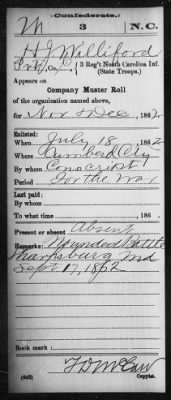 (Confederate.)
W 3 N.C.
H J Williford
Pvt, Co. , 3 Reg't North Carolina Inf.
(State Troops.)
Appears on
Company Muster Roll
of the organization named above,
for Nov & Dec, 1862.
Enlisted:
When July 18, 1862.
Where Cumberld Cty
By whom Conscript
Period For the War
Last paid:
By whom
To what time , 186 .
Present or absent Absent
Remarks: Wounded Battle
Sharpsburg Md
Sept 17, 1862
Book mark:
(642)
Copyist.